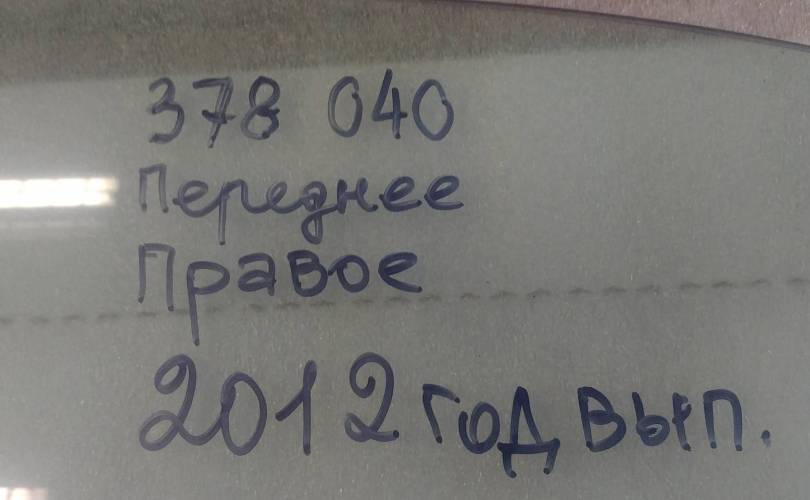 378 040
Переднее
Правое
2012 год вып.